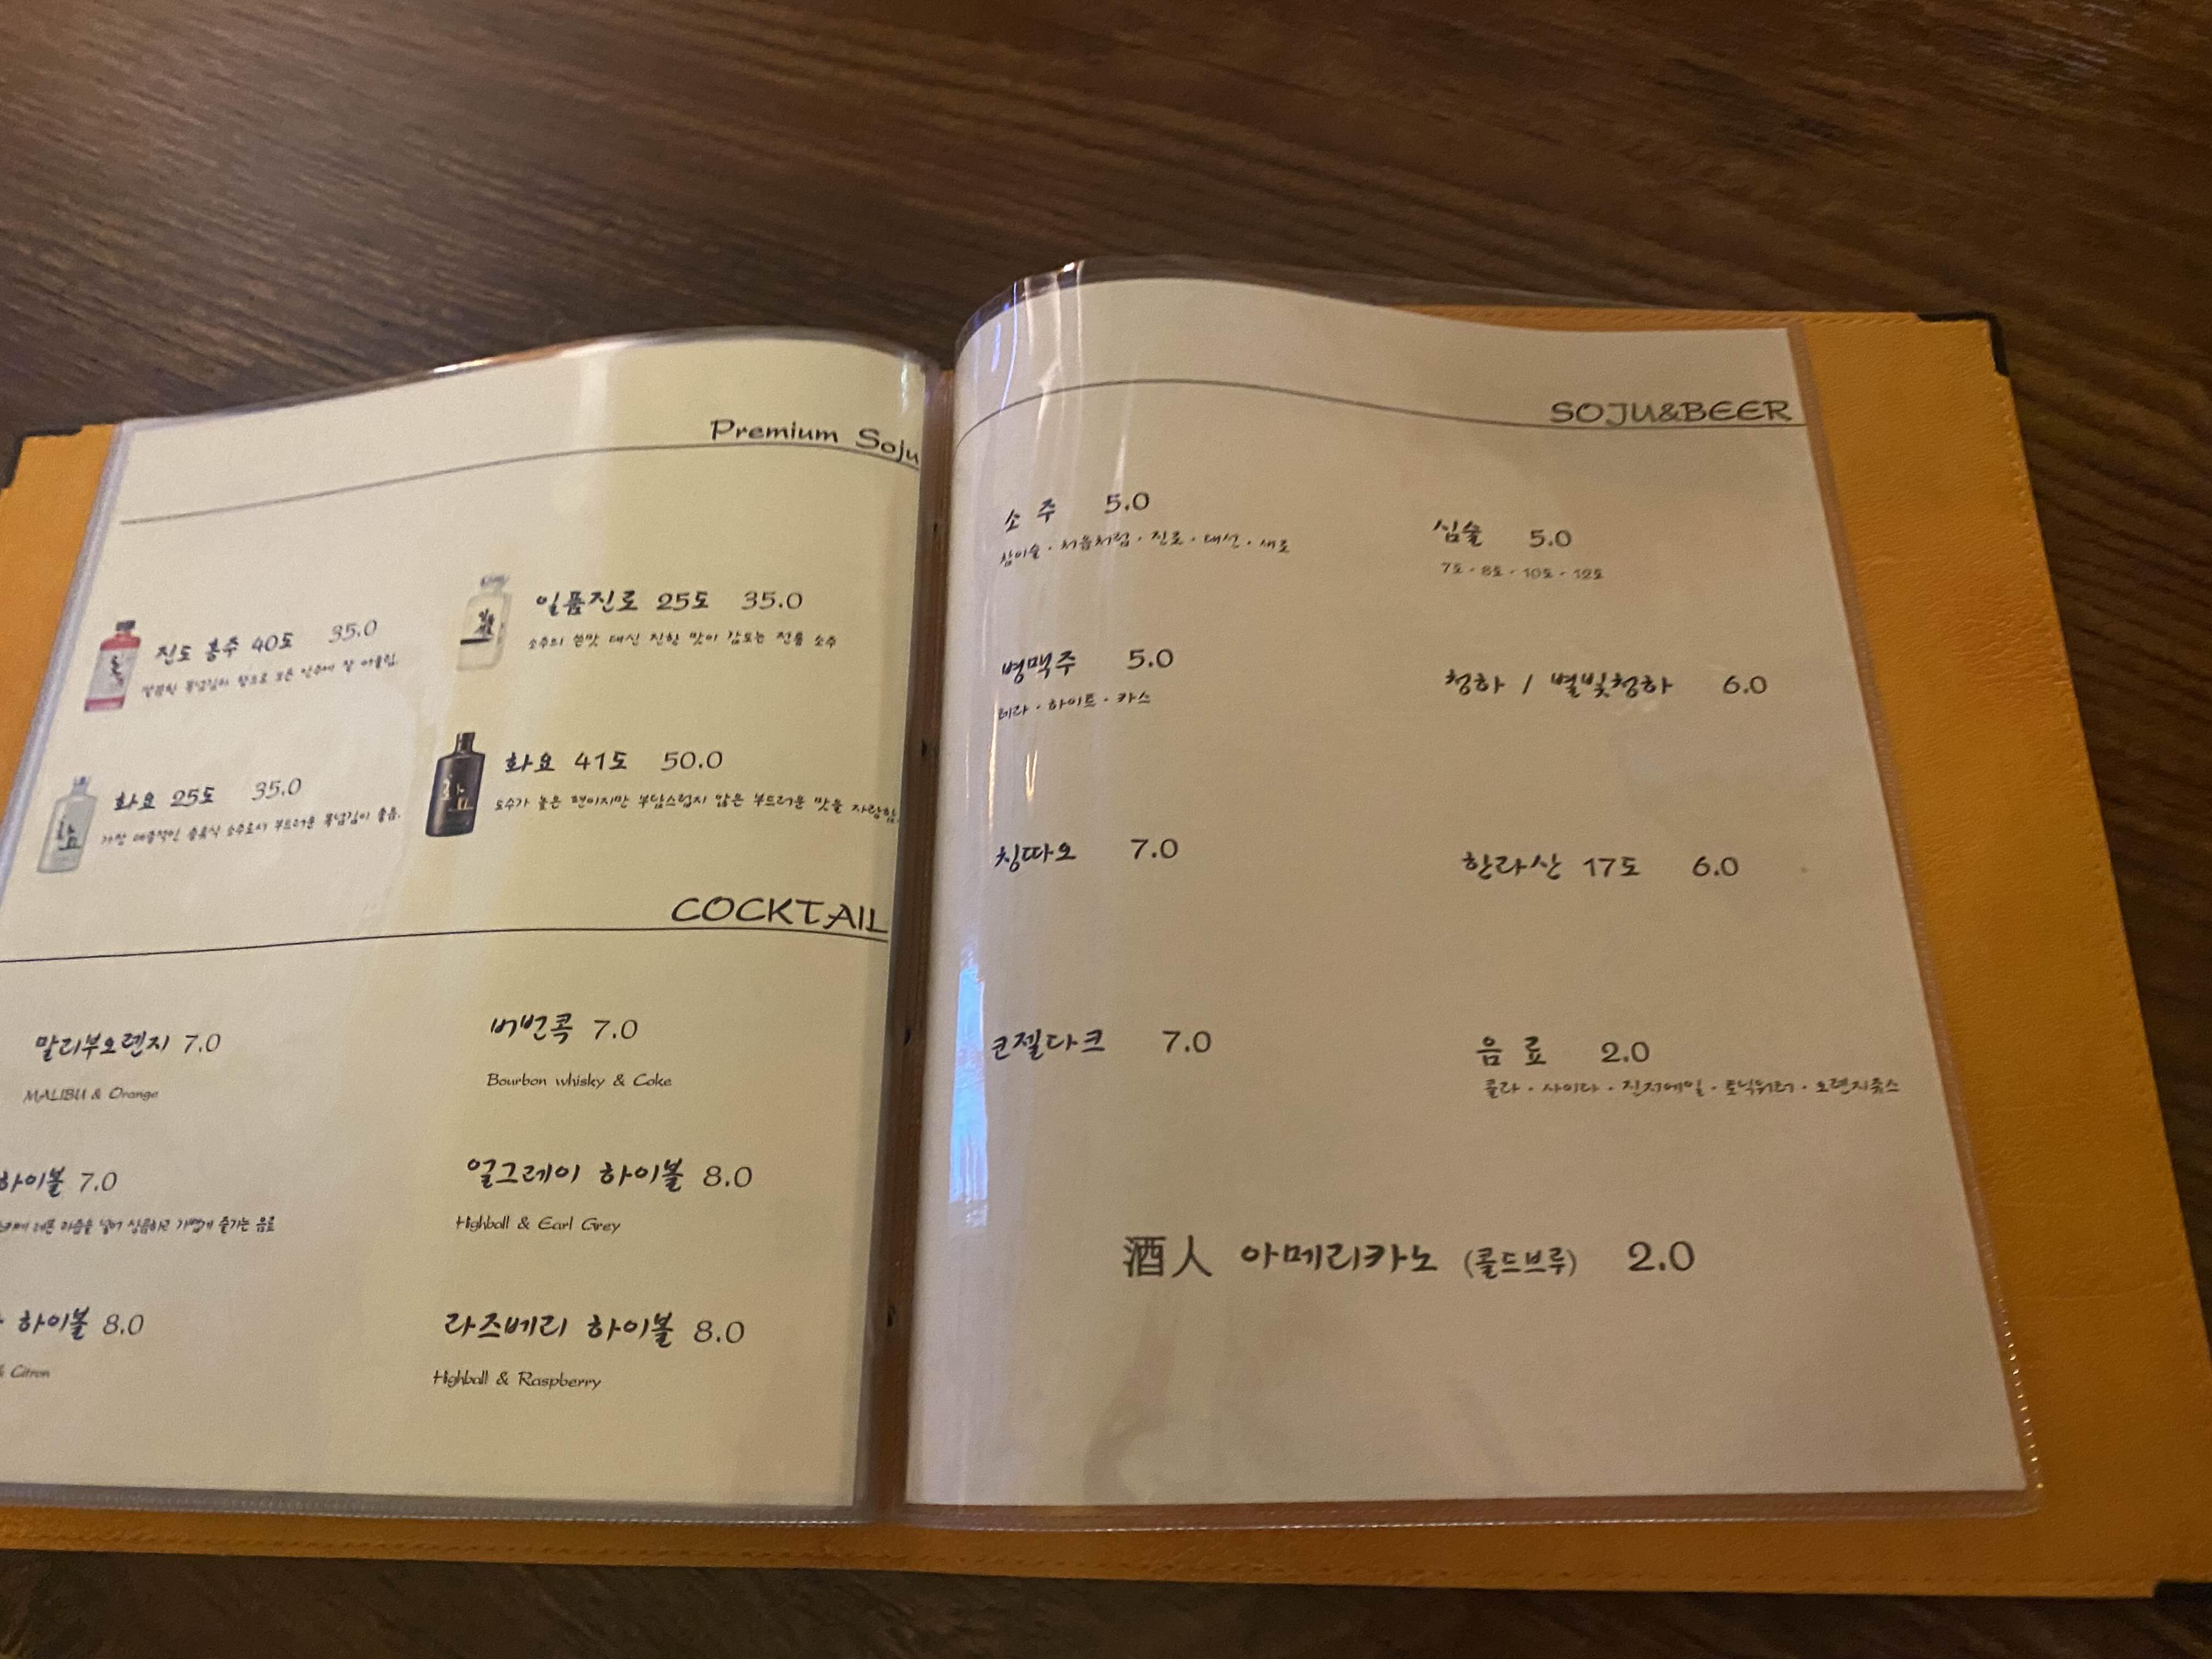 Premium Soju
진도 홍주 40도 35.0
깔끔한 목넘김의 향으로 모든 안주에 잘 어울림.
일품진로 25도 35.0
소주의 쓴맛 대신 진한 맛이 감도는 전통 소주
화요 25도 35.0
가장 대중적인 증류식 소주로서 부드러운 목넘김이 좋음.
화요 41도 50.0
도수가 높은 편이지만 부담스럽지 않은 부드러운 맛을 자랑함.
COCKTAIL
말리부오렌지 7.0
MALIBU & Orange
버번콕 7.0
Bourbon whisky & Coke
하이볼 7.0
레몬 과즙을 넣어 상큼하고 가볍게 즐기는 음료
얼그레이 하이볼 8.0
Highball & Earl Grey
하이볼 8.0
& Citron
라즈베리 하이볼 8.0
Highball & Raspberry
SOJU&BEER
소 주 5.0
참이슬 · 처음처럼 · 진로 · 대선 · 새로
심술 5.0
7도 · 8도 · 10도 · 12도
병맥주 5.0
테라 · 하이트 · 카스
청하 / 별빛청하 6.0
칭따오 7.0
한라산 17도 6.0
코젤다크 7.0
음 료 2.0
콜라 · 사이다 · 진저에일 · 토닉워터 · 오렌지쥬스
酒人 아메리카노 (콜드브루) 2.0